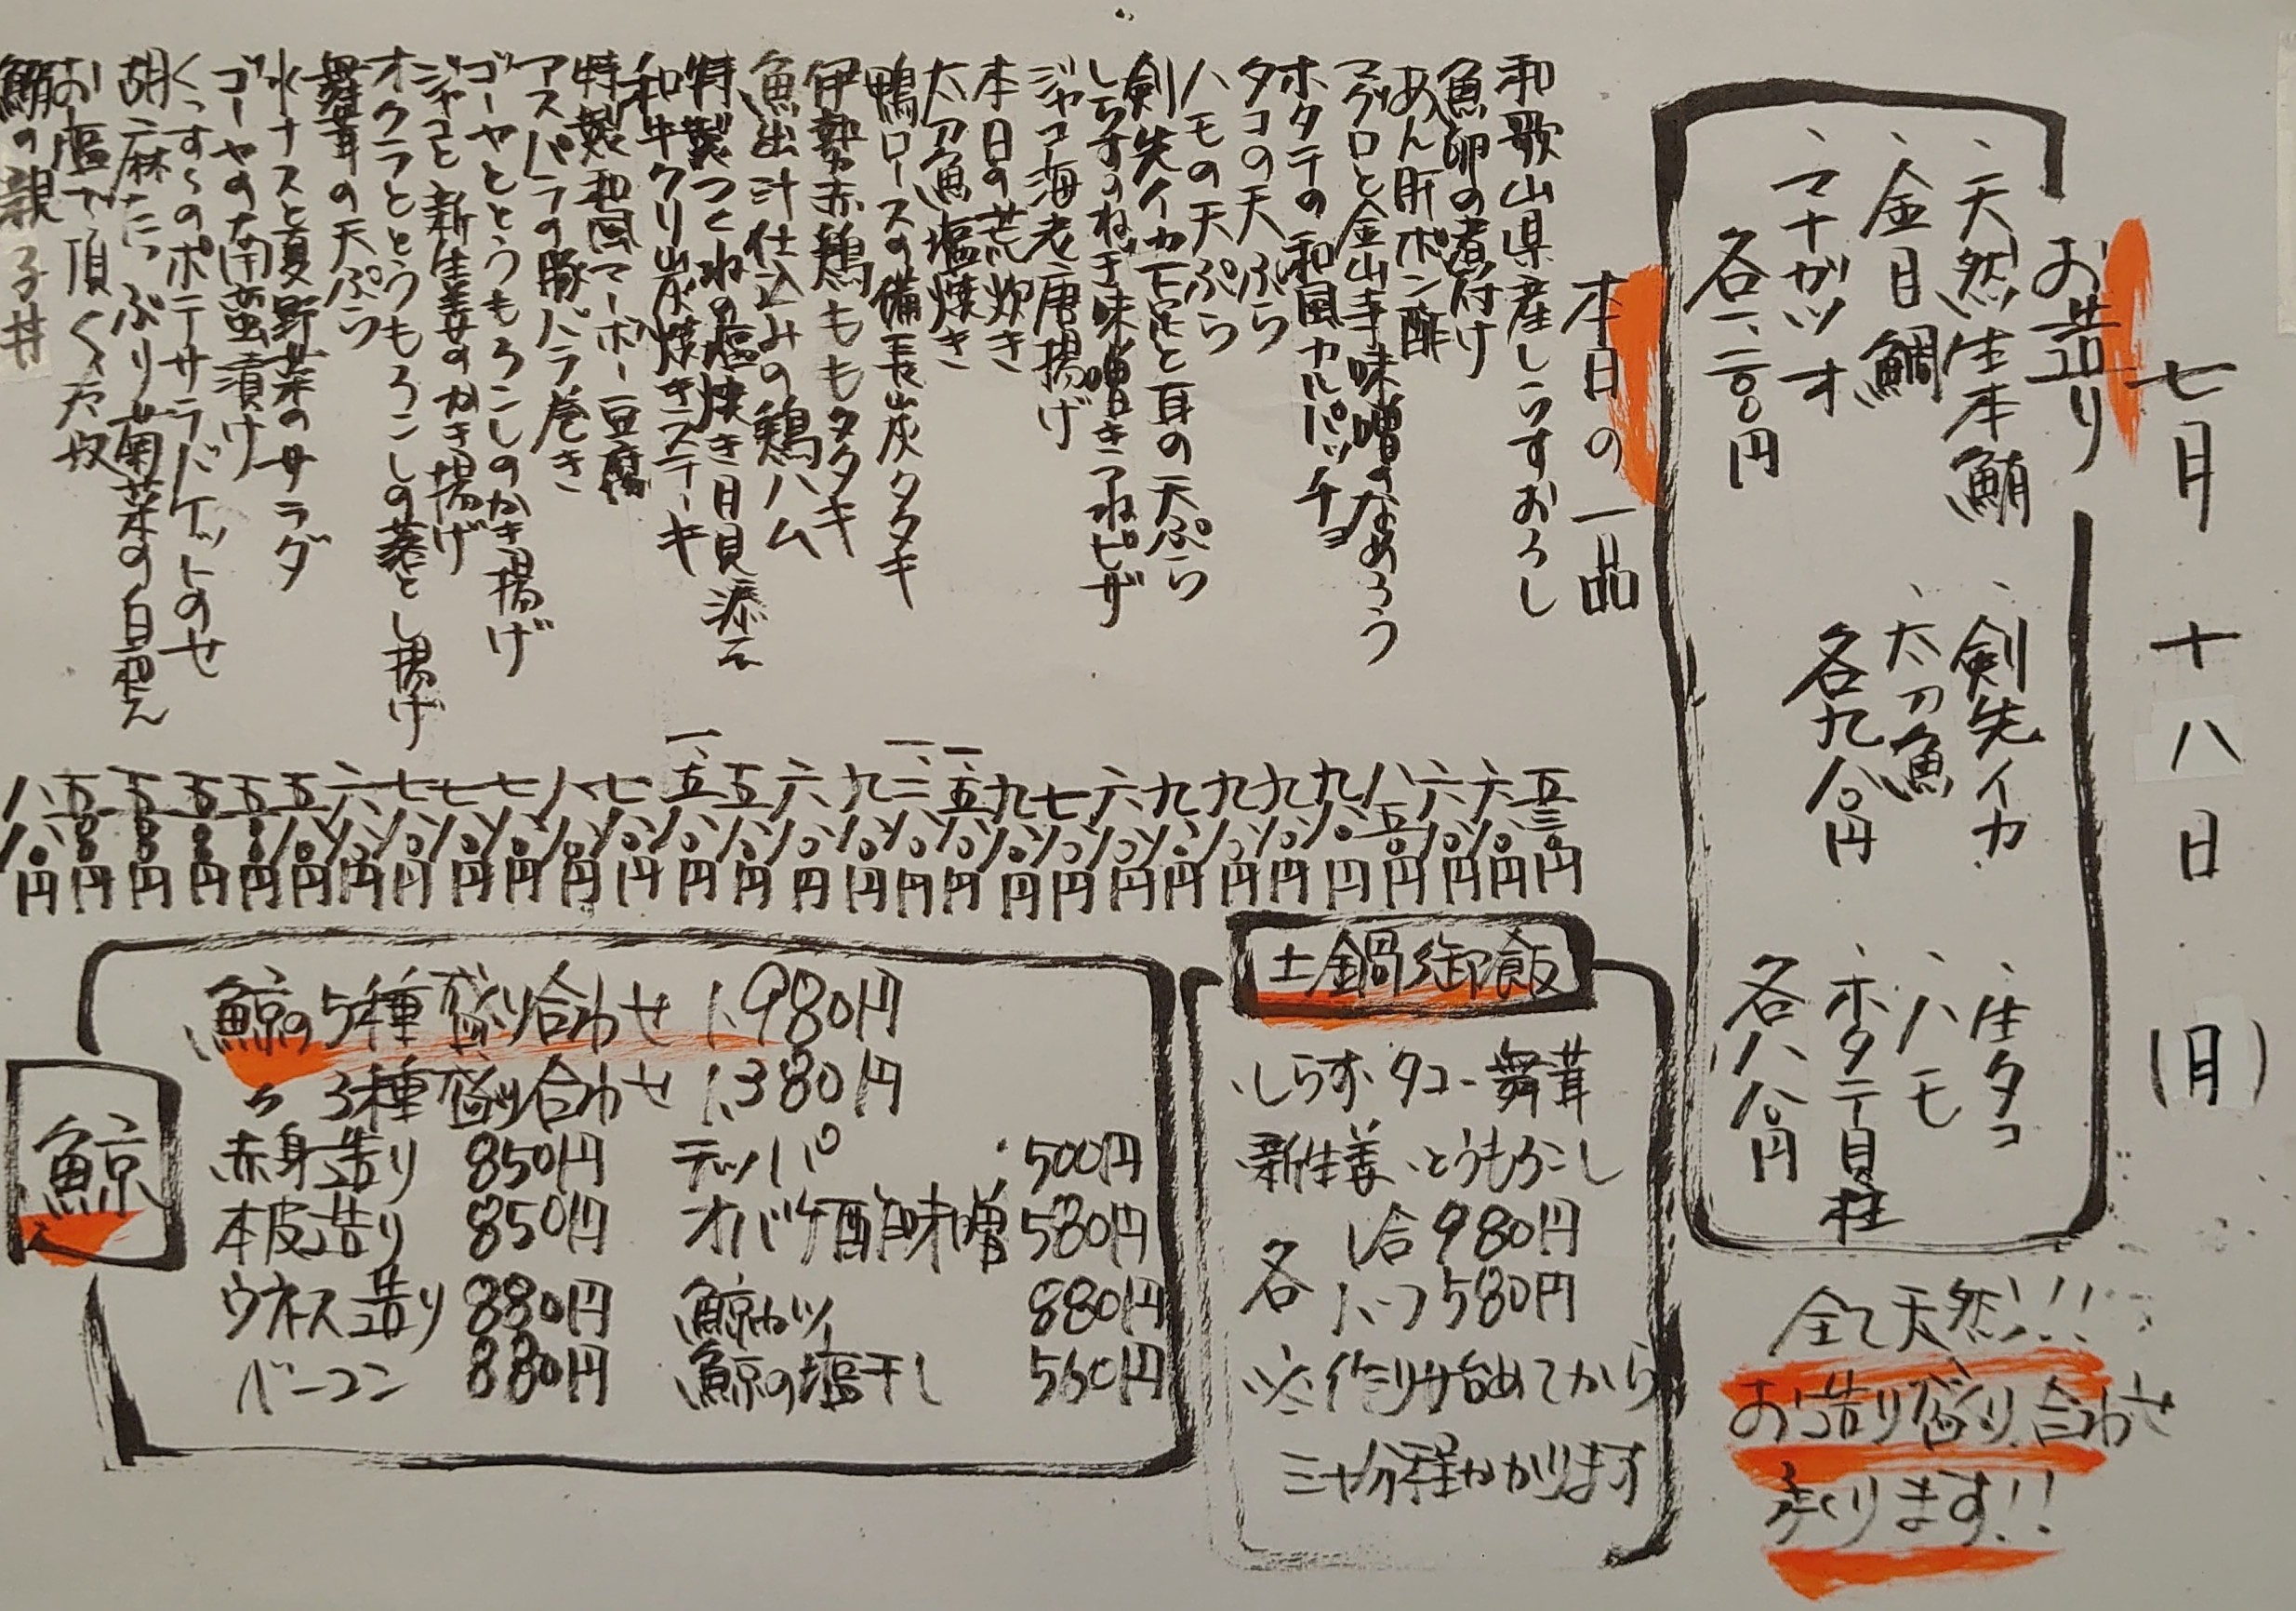 七月十八日(月)
お造り
、天然生本鮪
、金目鯛
、マナガツオ
各一、二〇〇円
、剣先イカ
、太刀魚
各九八〇円
、生タコ
、ハモ
、ホタテ貝柱
各八八〇円
全て天然!!
お造り盛り合わせ
承ります!!
本日の一品
和歌山県産しらすおろし 五三〇円
魚卵の煮付け 六八〇円
あん肝ポン酢 六八〇円
マグロと金山寺味噌のなめろう 八五〇円
ホタテの和風カルパッチョ 九八〇円
タコの天ぷら 九八〇円
ハモの天ぷら 九八〇円
剣先イカ下足と耳の天ぷら 九八〇円
しらすのねぎ味噌きつねピザ 六八〇円
ジャコ海老唐揚げ 七八〇円
本日の荒炊き 九八〇円
太刀魚塩焼き 一、五八〇円
鴨ロースの備長炭タタキ 一、三八〇円
伊勢赤鶏ももタタキ 九八〇円
魚出汁仕込みの鶏ハム 六八〇円
特製つくねの塩焼き月見添え 五八〇円
和牛クリ炭焼きステーキ 一、五八〇円
特製和風マーボー豆腐 七八〇円
アスパラの豚バラ巻き 八八〇円
ゴーヤととうもろこしのかき揚げ 七八〇円
ジャコと新生姜のかき揚げ 七八〇円
オクラととうもろこしの落とし揚げ 七八〇円
舞茸の天ぷら 六八〇円
水ナスと夏野菜のサラダ 五八〇円
ゴーヤの南蛮漬け 五〇〇円
くっすぅのポテサラバケットのせ 五〇〇円
胡麻たっぷり菊菜の白和え 五〇〇円
お塩で頂くくた奴 五〇〇円
鯛の親子丼 八八〇円
土鍋御飯
、しらす、タコ、舞茸
、新生姜、とうもろこし
各 1合980円
ハーフ580円
※作り始めてから
三十分程かかります
鯨
、鯨の5種盛り合わせ 1、980円
〃 3種盛り合わせ 1、380円
赤身造り 850円 テッパ 500円
本皮造り 850円 オバケ酢味噌 580円
ウネス造り 880円 鯨カツ 880円
ベーコン 880円 鯨の塩干し 560円